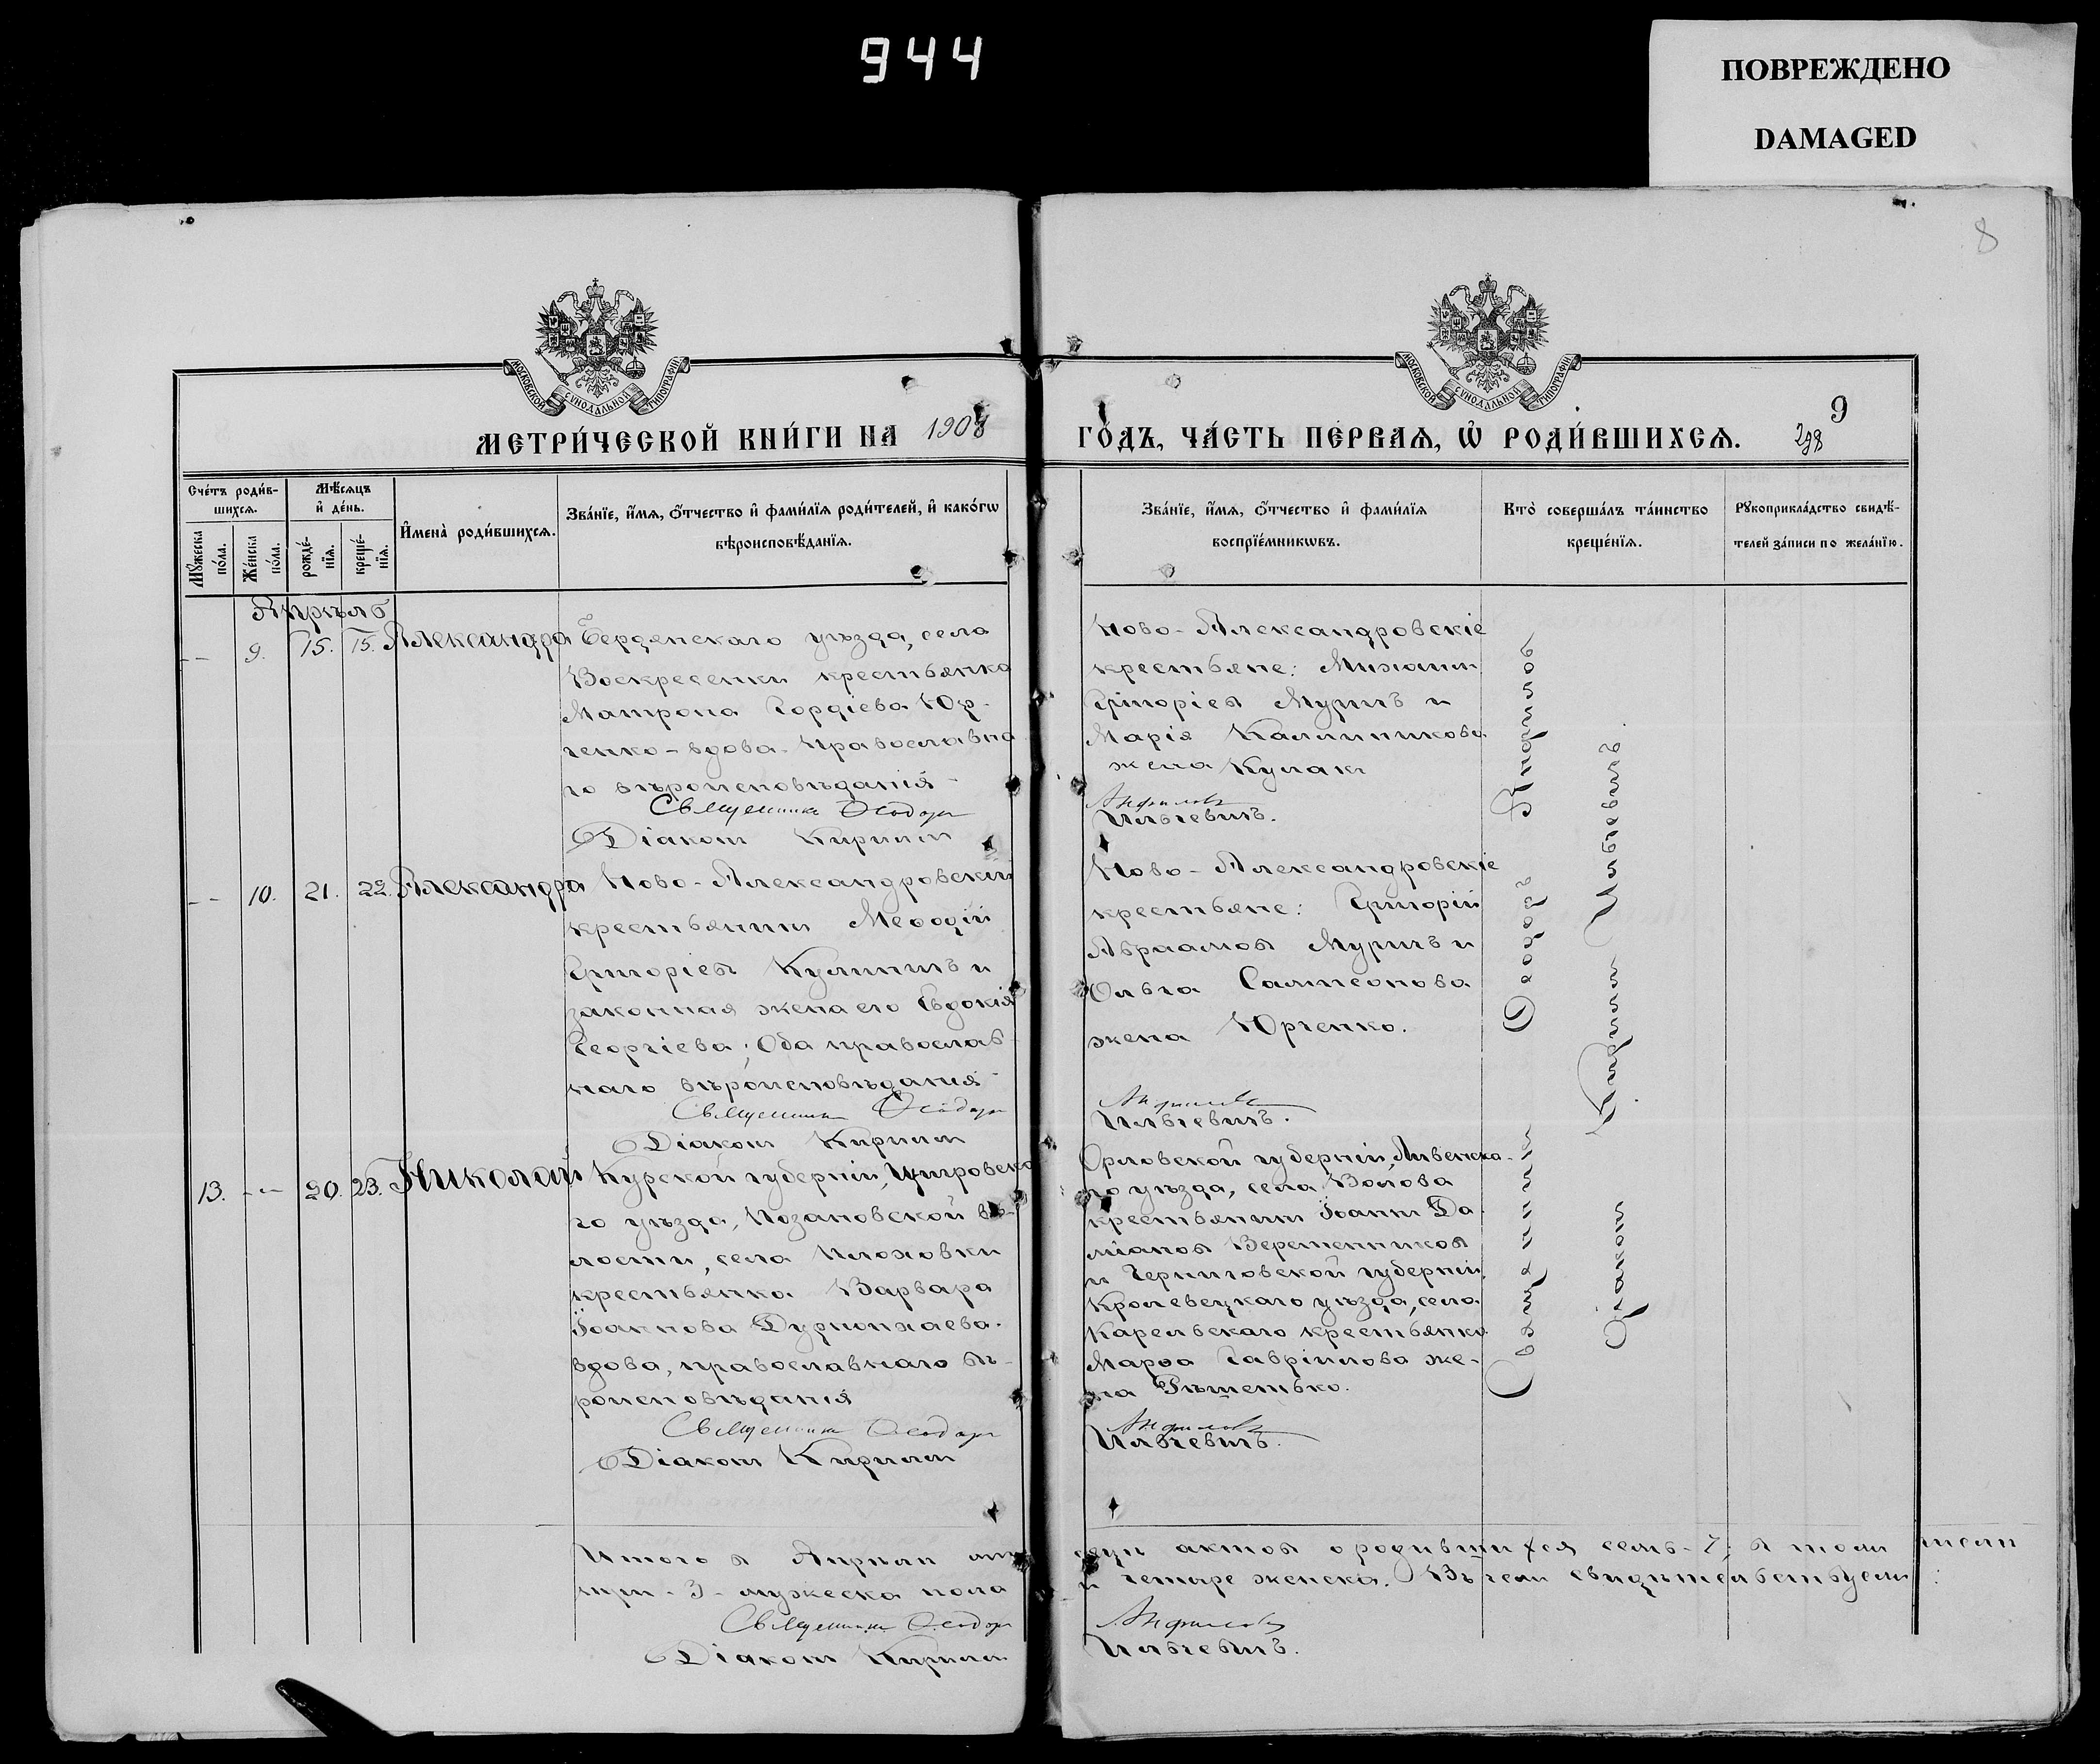 944
ПОВРЕЖДЕНО
DAMAGED
8
МОСКОВСКОЙ СѴНОДАЛЬНОЙ ТИПОГРАФІИ
МОСКОВСКОЙ СѴНОДАЛЬНОЙ ТИПОГРАФІИ
МЕТРИ́ЧЕСКОЙ КНИ́ГИ НА 1908
ГО́ДЪ, ЧА́СТЬ ПЕ́РВАѦ, Ѡ҆ РОДИ́ВШИХСѦ.
9
298
Сче́тъ роди́в-
шихсѧ.
Мꙋ́жеска по́ла.
Же́нска по́ла.
Мѣ́сѧцъ
и҆ де́нь.
рожде́-
нїѧ.
креще́-
нїѧ.
И҆мена̀ роди́вшихсѧ.
Зва́нїе, и҆́мѧ, ѻ҆́тчество и҆ фами́лїѧ роди́телей, и҆ како́гѡ
вѣроисповѣ́данїѧ.
Зва́нїе, и҆́мѧ, ѻ҆́тчество и҆ фами́лїѧ
воспрїе́мникѡвъ.
Кто̀ соверша́лъ та́инство
креще́нїѧ.
Рꙋкоприкла́дство свидѣ́-
телей за́писи по жела́нїю.
Апрѣль
— 9. 15. 15. Александра
Бердянскаго уѣзда, села
Воскресенки крестьянка
Матрона Гордіева Юр-
ченко-вдова. Православна
го вѣроисповѣданія
Священникъ Ѳеодоръ
Діаконъ Кириллъ
Ново-Александровскіе
крестьяне: Михаилъ
Григоріевъ Муричъ и
Марія Каллиникова
жена Кулакъ
Анфиловъ
Ильчевичъ.
-- 10. 21. 22. Александра
Ново-Александровскій
крестьянинъ Меѳодій
Григоріевъ Кулиничъ и
законная жена его Евдокія
Георгіева; Оба православ
наго вѣроисповѣданія
Священникъ Ѳеодоръ
Діаконъ Кириллъ
Ново-Александровскіе
крестьяне: Григорій
Авраамовъ Муричъ и
Ольга Сампсонова
жена Юрченко.
Анфиловъ
Ильчевичъ.
13. -- 20. 23. Николай
Курской губерніи, Щигровска
го уѣзда, во-
лости, села Плоховки
крестьянка Варвара
Іоаннова
вдова, православнаго вѣ-
роисповѣданія
Священникъ Ѳеодоръ
Діаконъ Кириллъ
Орловской губерніи, Ливенска-
го уѣзда, села Волова
крестьянинъ Іоаннъ Да-
міановъ Веретенниковъ
и Черниговской губерніи,
Кролевецкаго уѣзда, села
Карельскаго крестьянка
Марѳа Гавріилова же-
на Рѣшетько.
Анфиловъ
Ильчевичъ.
Священникъ Ѳеодоръ Анфиловъ
Діаконъ Кириллъ Ильчевичъ.
Итого въ Апрѣлѣ мѣ сяцѣ актовъ о родившихся семь-7; въ томъ числѣ
три-3-мужеска пола и четыре женска. Въ чемъ свидѣтельствуемъ:
Священникъ Ѳеодоръ Анфиловъ
Діаконъ Кириллъ Ильчевичъ.